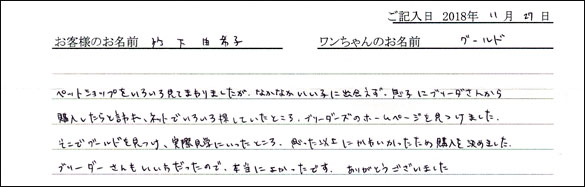 ご記入日 2018年 11月 27日
お客様のお名前 竹下由希子 ワンちゃんのお名前 グールド
ペットショップをいろいろ見てまわりましたが、なかなかいい子に出会えず、息子にブリーダーさんから
購入したらと言われ、ネットでいろいろ探していたところ、ブリーダーズのホームページを見つけました。
そこでグールドを見つけ、実際見学にいったところ、思った以上にかわいかったため購入を決めました。
ブリーダーさんもいい方だったので、本当によかったです。ありがとうございました